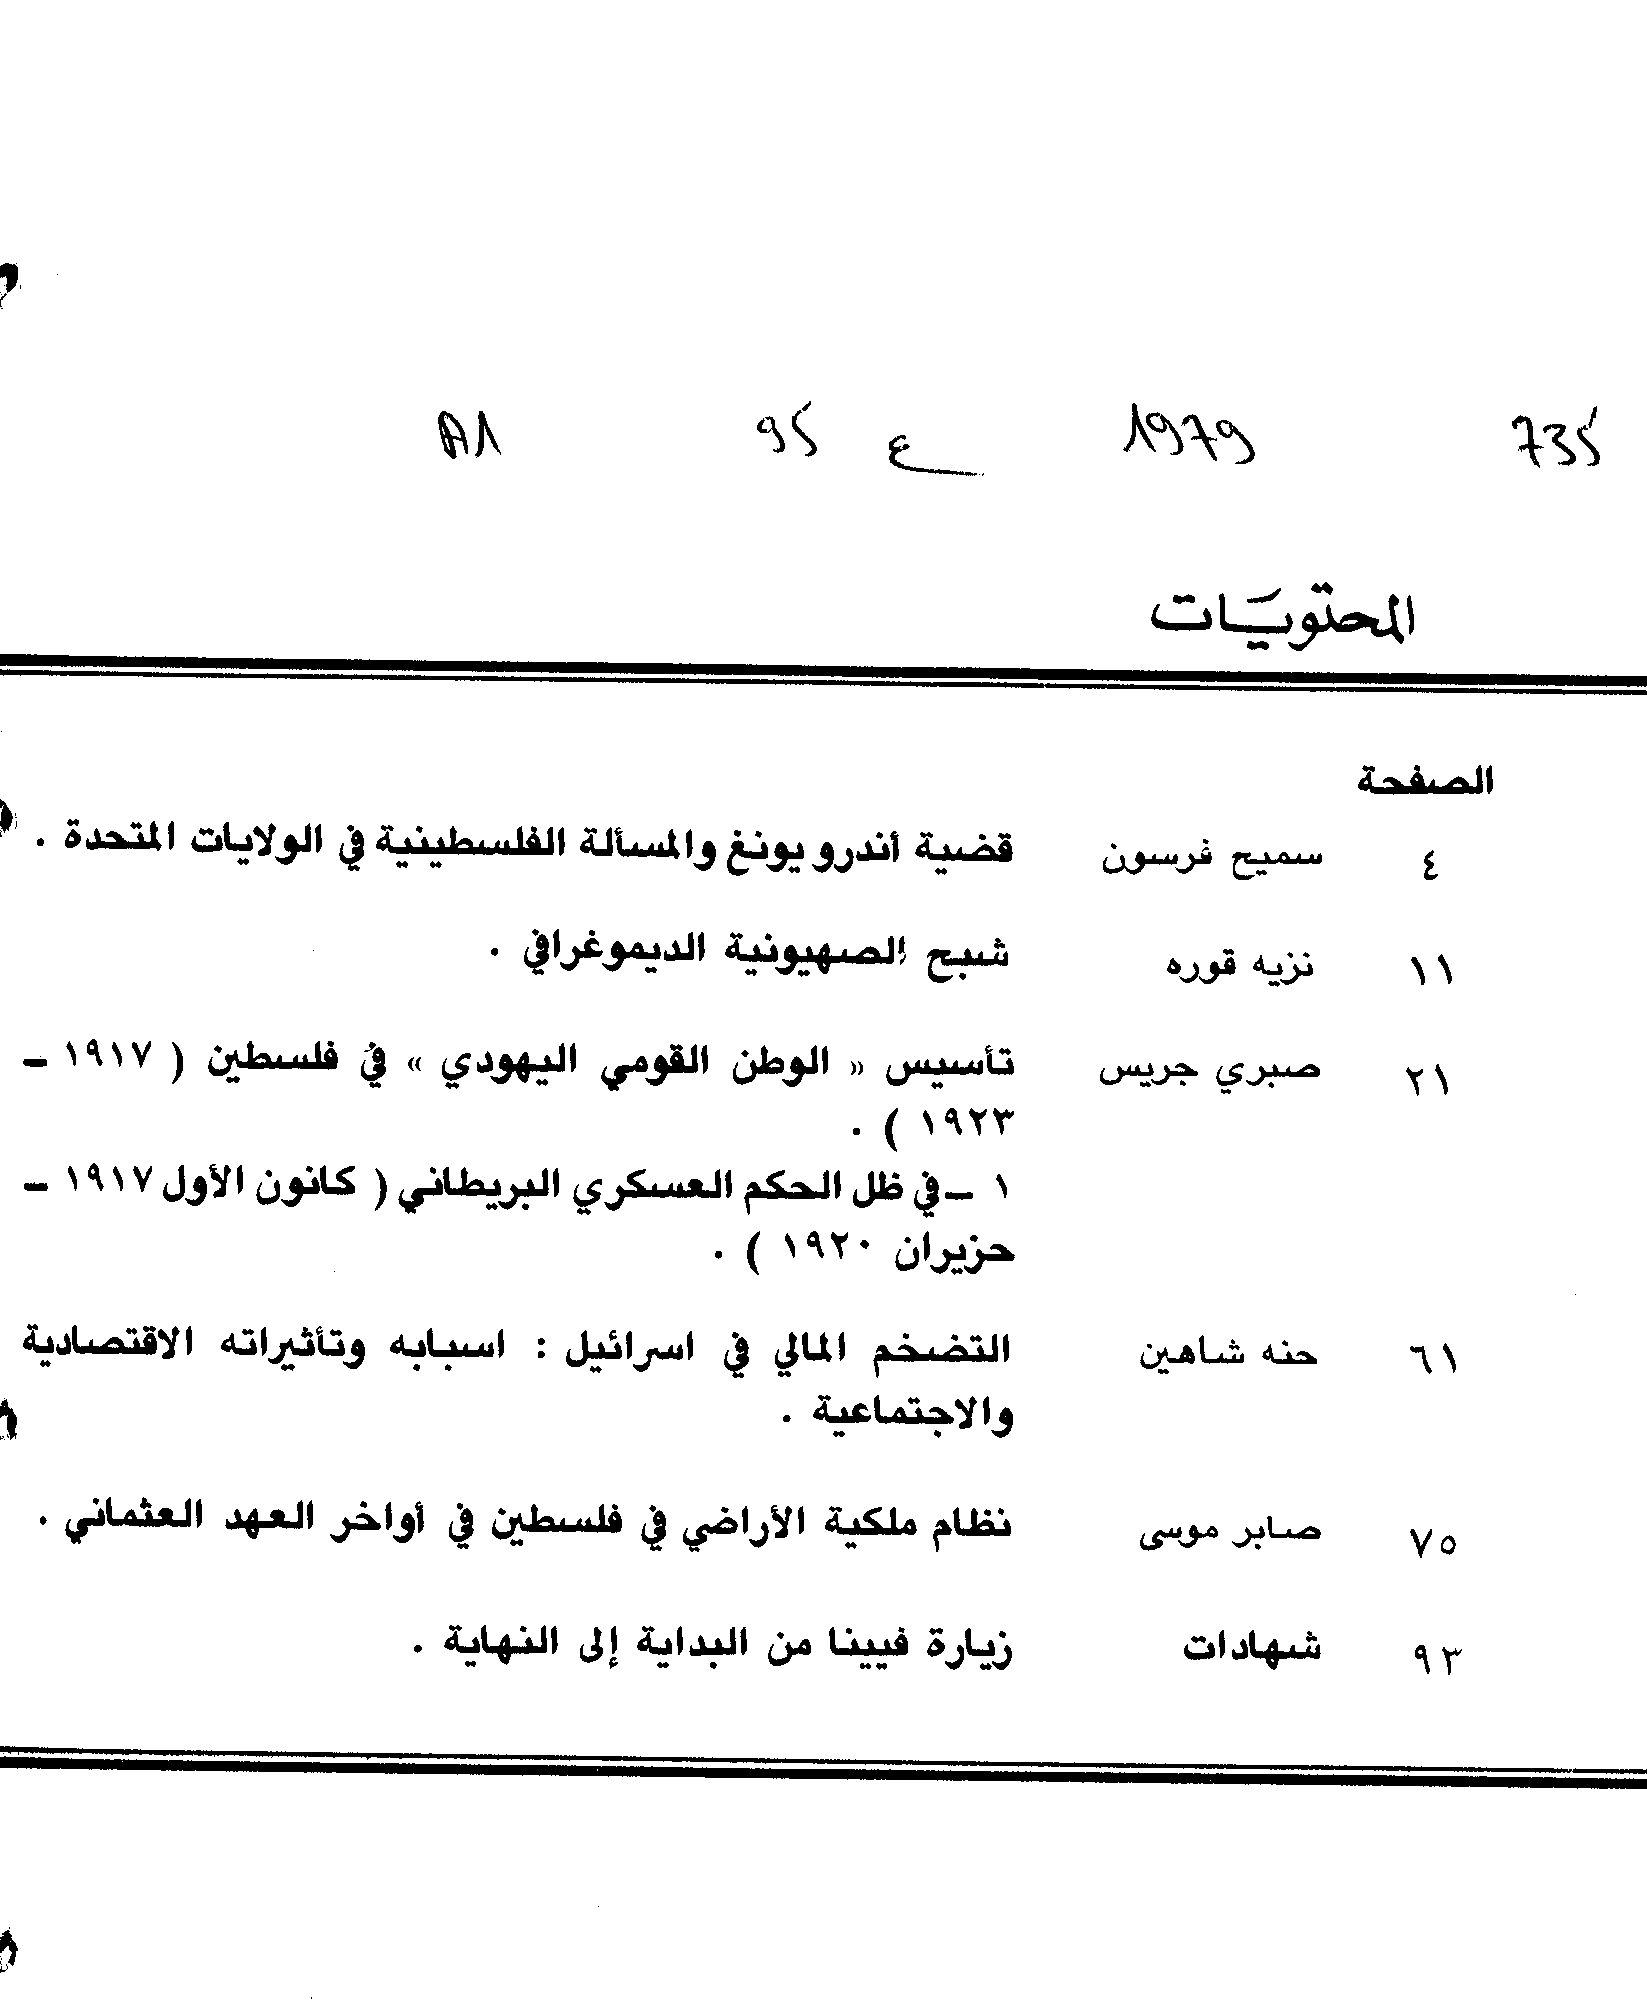 735 1979 ع 95 A1
المحتويات
الصفحة
٤ سميح فرسون قضية أندرو يونغ والمسألة الفلسطينية في الولايات المتحدة .
١١ نزيه قوره شبح الصهيونية الديموغرافي .
٢١ صبري جريس تأسيس « الوطن القومي اليهودي » في فلسطين ( ١٩١٧ –
١٩٢٣ ) .
١ – في ظل الحكم العسكري البريطاني ( كانون الأول ١٩١٧ –
حزيران ١٩٢٠ ) .
٦١ حنه شاهين التضخم المالي في اسرائيل : اسبابه وتأثيراته الاقتصادية
والاجتماعية .
٧٥ صابر موسى نظام ملكية الأراضي في فلسطين في أواخر العهد العثماني .
٩٣ شهادات زيارة فيينا من البداية إلى النهاية .